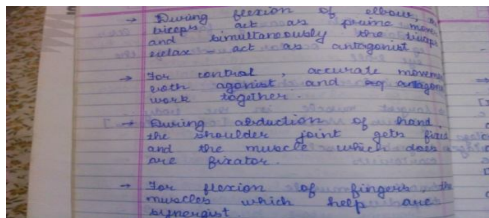 → During flexion of elbow,
biceps act as prime mover
and simultaneously the tricep
relax - act as antagonist
→ For control, accurate movem
both agonist and antagon
work together.
→ During abduction of hand,
the shoulder joint gets fixed
and the muscle which does
are fixator.
→ For flexion of fingers the
muscles which help are
synergist